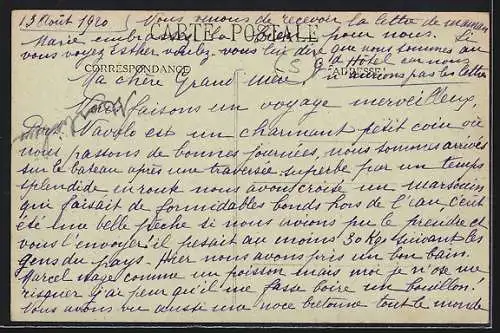 13 Août 1920 (Nous venons de recevoir la lettre de maman
CARTE POSTALE
Marie embrassez la bien pour nous. Si
vous voyez Esther voulez-vous lui dire que nous sommes au
Gd Hôtel car nous
CORRESPONDANCE
ADRESSE
n'aurions pas les lettres
Ma chère Grand'mère,
Nous faisons un voyage merveilleux,
est un charmant petit coin où
nous passons de bonnes journées, nous sommes arrivés
sur le bateau après une traversée superbe par un temps
splendide, en route nous avons croisé un marsouin
qui faisait de formidables bonds hors de l'eau, c'eut
été une belle pêche si nous avions pu le prendre et
vous l'envoyer il pesait au moins 30 Kgs suivant les
gens du pays. Hier nous avons pris un bon bain.
Marcel nage comme un poisson mais moi je n'ose me
risquer j'ai peur qu'il me fasse boire un bouillon.
Nous avons vu aussi une noce bretonne tout le monde